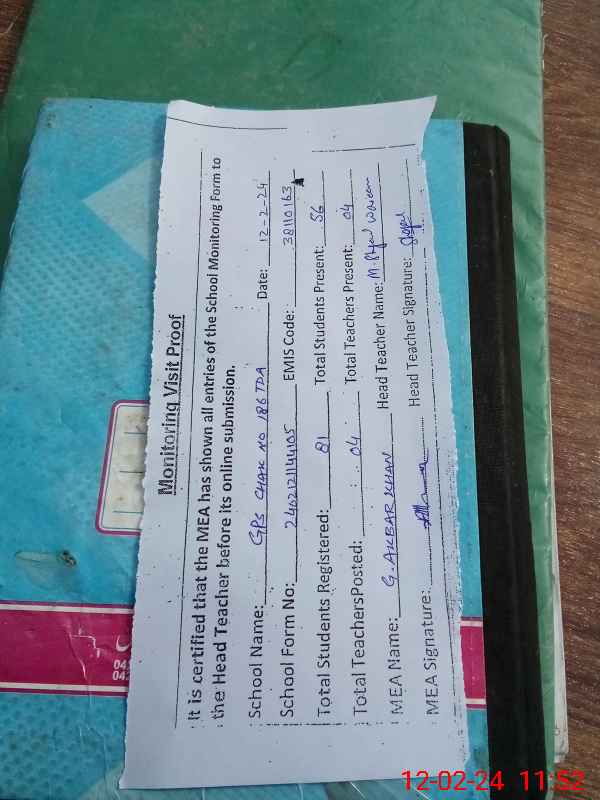 Monitoring Visit Proof
It is certified that the MEA has shown all entries of the School Monitoring Form to
the Head Teacher before its online submission.
School Name: GPS CHAK NO 186 TDA Date: 12-2-24
School Form No: 2462121144105 EMIS Code: 38110163
Total Students Registered: 81 Total Students Present: 56
Total TeachersPosted: 04 Total Teachers Present: 04
MEA Name: G. AKBAR KHAN Head Teacher Name: M. Waseem
MEA Signature: Head Teacher Signature:
12-02-24 11:52